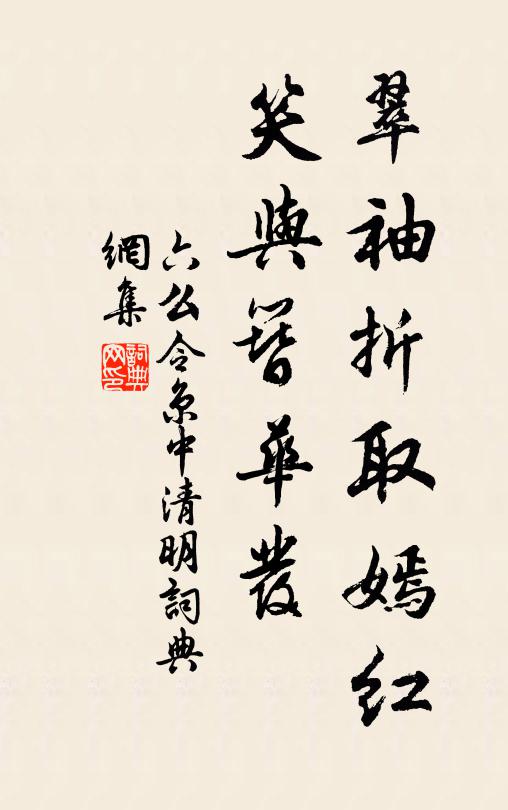 翠袖折取嫣红
笑與簪華發
六么令京中清明詞典
網集
詞典
网印